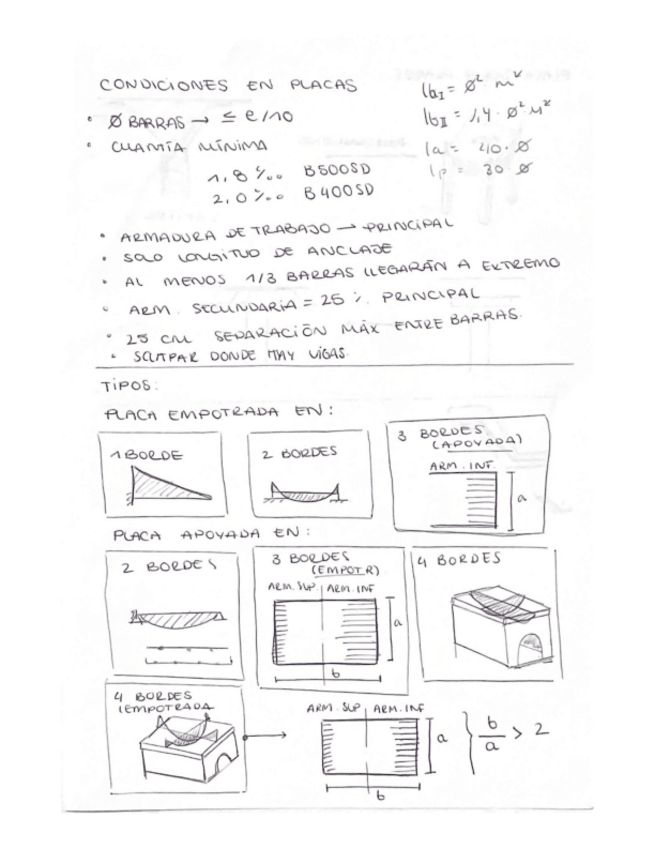 CONDICIONES EN PLACAS
lbI = Ø² m
• Ø BARRAS → ≤ e/10
lbII = 1,4 · Ø² M
• CUANTÍA MÍNIMA
la = 40 · Ø
lp = 30 Ø
1,8 ‰ B500SD
2,0 ‰ B400SD
• ARMADURA DE TRABAJO → PRINCIPAL
• SOLO LONGITUD DE ANCLAJE
• AL MENOS 1/3 BARRAS LLEGARÁN A EXTREMO
• ARM. SECUNDARIA = 25 % PRINCIPAL
• 25 CM SEPARACIÓN MÁX ENTRE BARRAS.
• DONDE HAY VIGAS.
TIPOS:
PLACA EMPOTRADA EN:
1 BORDE
2 BORDES
3 BORDES
(APOYADA)
ARM. INF.
a
PLACA APOYADA EN:
2 BORDES
3 BORDES
(EMPOTR)
ARM. SUP | ARM. INF
a
b
4 BORDES
4 BORDES
(EMPOTRADA
ARM. SUP | ARM. INF
a
b
b/a > 2